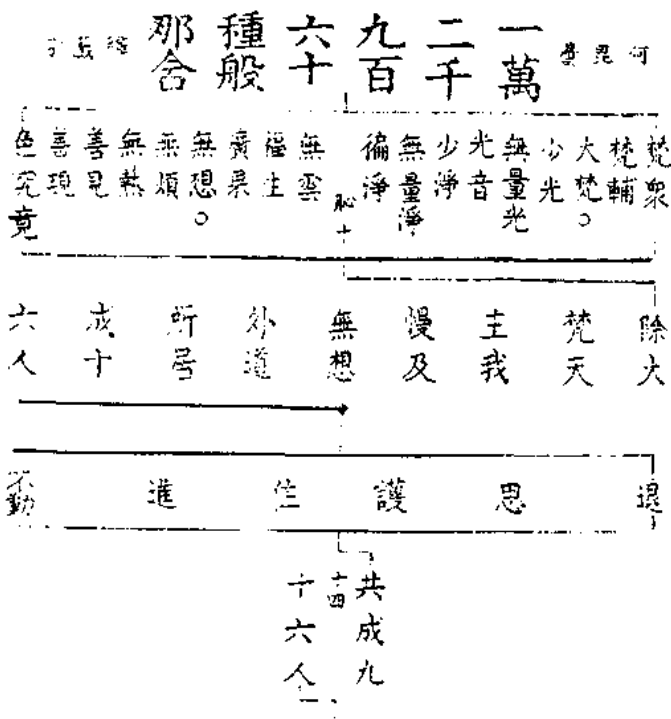 何毘曇
一萬
二千
九百
六十
種般
那含
梵眾
梵輔
大梵○
少光
無量光
光音
少淨
無量淨
徧淨
無雲
福生
廣果
無想○
無煩
無熱
善見
善現
色究竟
除大
梵天
主我
慢及
無想
外道
所居
成十
六人
退
思
護
住
進
不動
共成九
十四
十六人